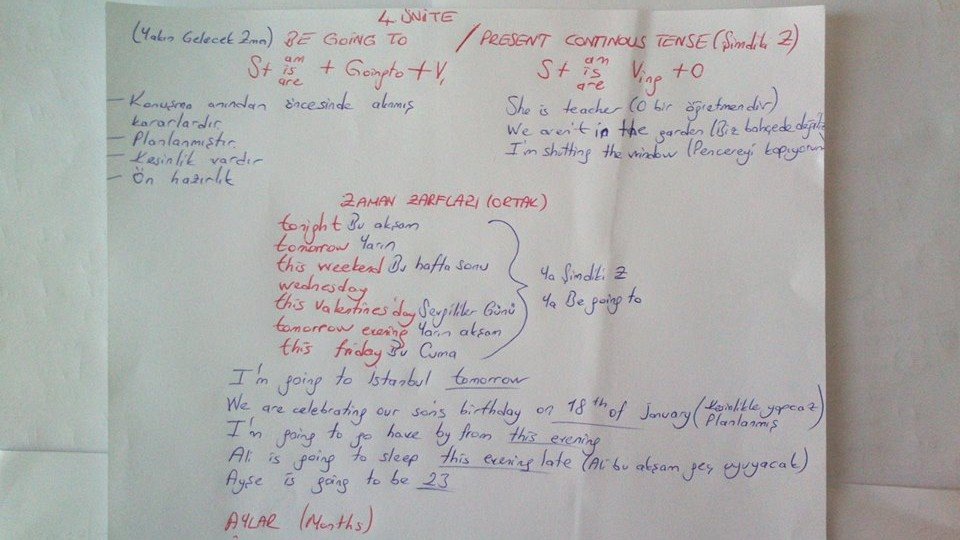 4 ÜNİTE
(Yakın Gelecek Zmn) BE GOING TO / PRESENT CONTINOUS TENSE (Şimdiki Z)
S+ am is are + Going to + V1
S+ am is are Ving + O
– Konuşma anından öncesinde alınmış kararlardır
– Planlanmıştır
– Kesinlik vardır
– Ön hazırlık
She is teacher (O bir öğretmendir)
We aren't in the garden (Biz bahçede değiliz
I'm shutting the window (Pencereyi kapıyorum
ZAMAN ZARFLARI (ORTAK)
tonight Bu akşam
tomorrow Yarın
this weekend Bu hafta sonu
wednesday
this valentines'day Sevgililer Günü
tomorrow evening Yarın akşam
this friday Bu Cuma
Ya Şimdiki Z
Ya Be going to
I'm going to Istanbul tomorrow
We are celebrating our son's birthday on 18th of january (Kesinlikle yapcaz) Planlanmış
I'm going to go have by from this evening
Ali is going to sleep this evening late (Ali bu akşam geç uyuyacak)
Ayşe is going to be 23
AYLAR (Months)